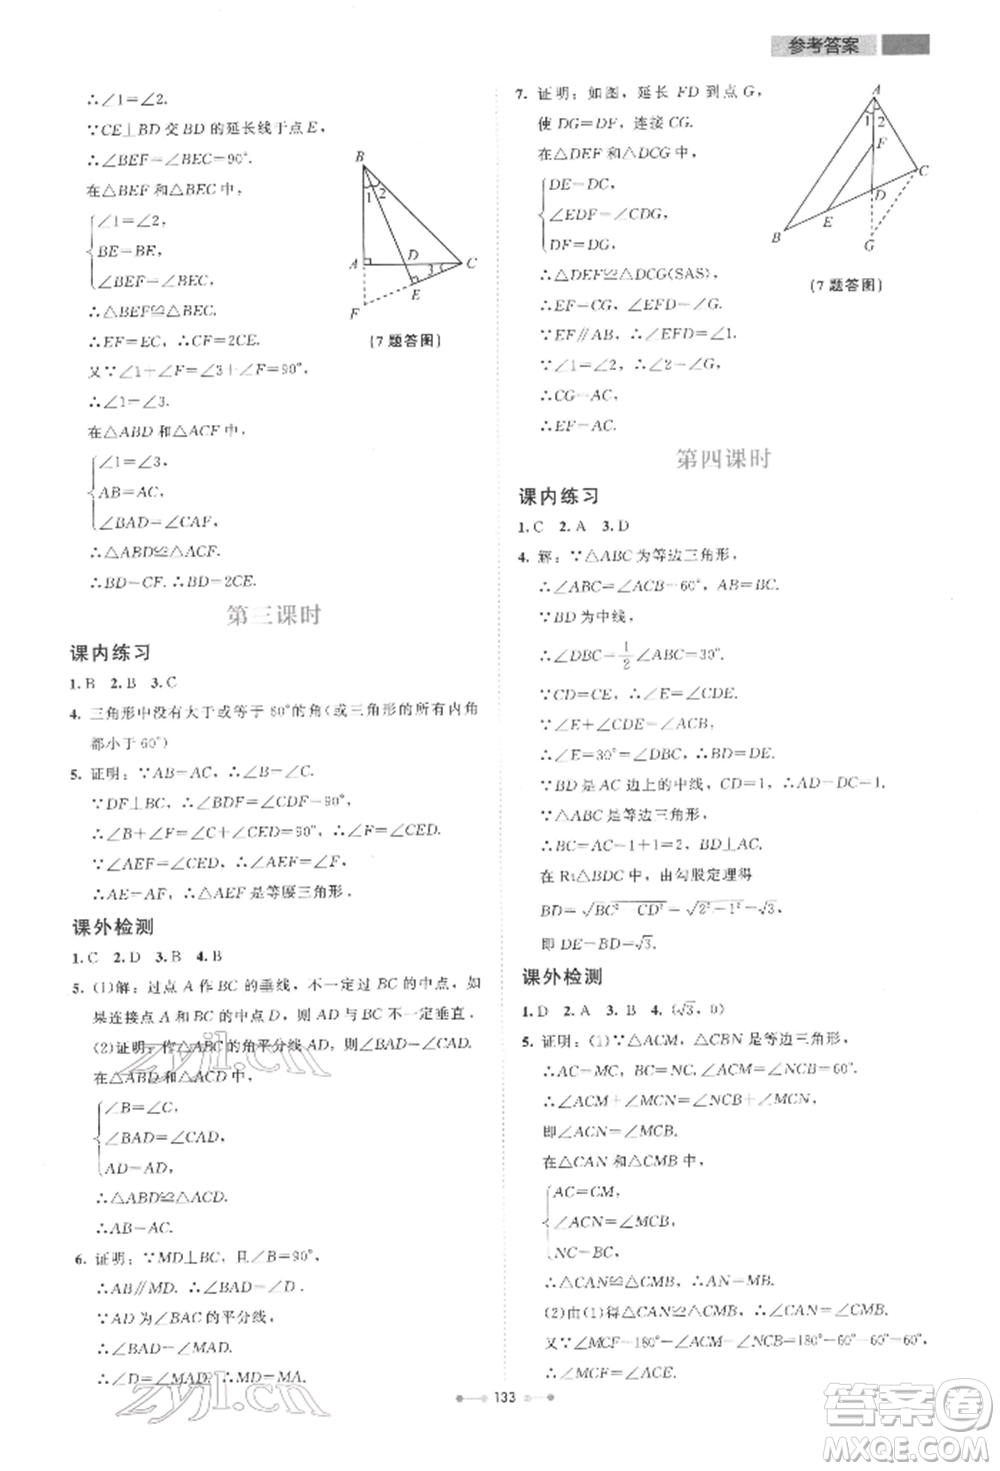 参考答案
∴∠1=∠2.
∵CE⊥BD 交 BD 的延长线于点 E,
∴∠BEF=∠BEC=90°.
在△BEF 和△BEC 中,
∠1=∠2,
BE=BE,
∠BEF=∠BEC,
∴△BEF≌△BEC.
∴EF=EC, ∴CF=2CE.
又∵∠1+∠F=∠3+∠F=90°,
∴∠1=∠3.
在△ABD 和△ACF 中,
∠1=∠3,
AB=AC,
∠BAD=∠CAF,
∴△ABD≌△ACF.
∴BD=CF. ∴BD=2CE.
B
1
2
A
D
3
C
E
F
(7题答图)
第三课时
课内练习
1. B 2. B 3. C
4. 三角形中没有大于或等于 60°的角(或三角形的所有内角
都小于 60°)
5. 证明: ∵AB=AC, ∴∠B=∠C.
∵DF⊥BC, ∴∠BDF=∠CDF=90°,
∴∠B+∠F=∠C+∠CED=90°, ∴∠F=∠CED.
∵∠AEF=∠CED, ∴∠F=∠AEF.
∴AE=AF, ∴△AEF 是等腰三角形.
课外检测
1. C 2. D 3. B 4. B
5. (1)解: 过点 A 作 BC 的垂线, 不一定过 BC 的中点, 如
果连接点 A 和 BC 的中点 D, 则 AD 与 BC 不一定垂直.
(2)证明: 作△ABC 的角平分线 AD, 则∠BAD=∠CAD.
在△ABD 和△ACD 中,
∠B=∠C,
∠BAD=∠CAD,
AD=AD,
∴△ABD≌△ACD.
∴AB=AC.
6. 证明: ∵MD⊥BC, 且∠B=90°,
∴AB∥MD. ∴∠BAD=∠D.
∵AD 为∠BAC 的平分线,
∴∠BAD=∠MAD.
∴∠D=∠MAD. ∴MD=MA.
7. 证明: 如图, 延长 FD 到点 G,
使 DG=DF, 连接 CG.
在△EDF 和△DCG 中,
DE=DC,
∠EDF=∠CDG,
DF=DG,
∴△EDF≌△DCG(SAS)
∴EF=CG, ∠EFD=∠G.
∵EF∥AB, ∴∠EFD=∠1.
∵∠1=∠2, ∴∠2=∠G.
∴CG=AC,
∴EF=AC.
A
1
2
F
C
D
E
B
G
(7题答图)
第四课时
课内练习
1. C 2. A 3. D
4. 解: ∵△ABC 为等边三角形,
∴∠ABC=∠ACB=60°, AB=BC.
∵BD 为中线,
∴∠DBC=1/2∠ABC=30°.
∵CD=CE, ∴∠E=∠CDE.
∵∠E+∠CDE=∠ACB,
∴∠E=30°=∠DBC, ∴BD=DE.
∵BD 是 AC 边上的中线, CD=1, ∴AD=DC=1.
∵△ABC 是等边三角形,
∴BC=AC=1+1=2, BD⊥AC.
在 Rt△BDC 中, 由勾股定理得
BD=√BC²-CD²=√2²-1²=√3,
即 DE=BD=√3.
课外检测
1. D 2. A 3. B 4. (√3, 0)
5. 证明: (1)∵△ACM, △CBN 是等边三角形,
∴AC=MC, BC=NC, ∠ACM=∠NCB=60°.
∴∠ACM+∠MCN=∠NCB+∠MCN,
即∠ACN=∠MCB.
在△CAN 和△CMB 中,
AC=CM,
∠ACN=∠MCB,
NC=BC,
∴△CAN≌△CMB, ∴AN=BM.
(2)由(1)得△CAN≌△CMB, ∴∠CAN=∠CMB.
又∵∠MCF=180°-∠ACM-∠NCB=180°-60°-60°=60°,
∴∠MCF=∠ACE.
133
zyjl.cn
zyjl.cn
答案卷
MXQE.COM